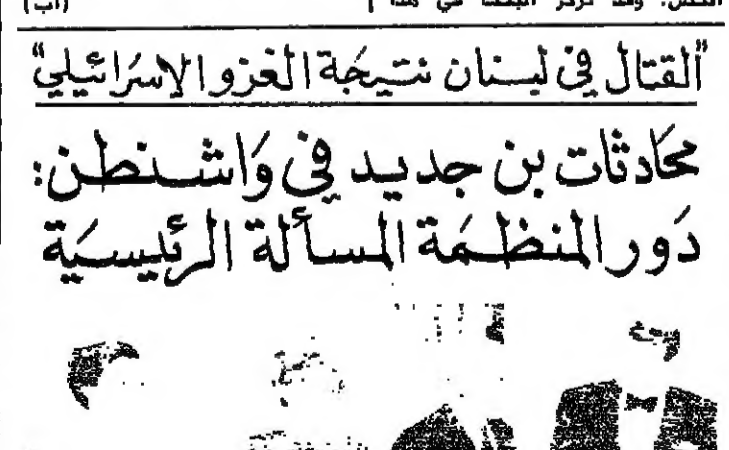 (اب)
"القتال في لبنان نتيجة الغزو الاسرائيلي"
محادثات بن جديد في واشنطن:
دور المنظمة المسألة الرئيسية